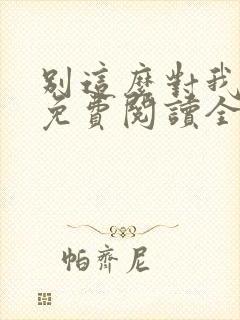 別這麼對我
免費閱讀全
帕齊尼